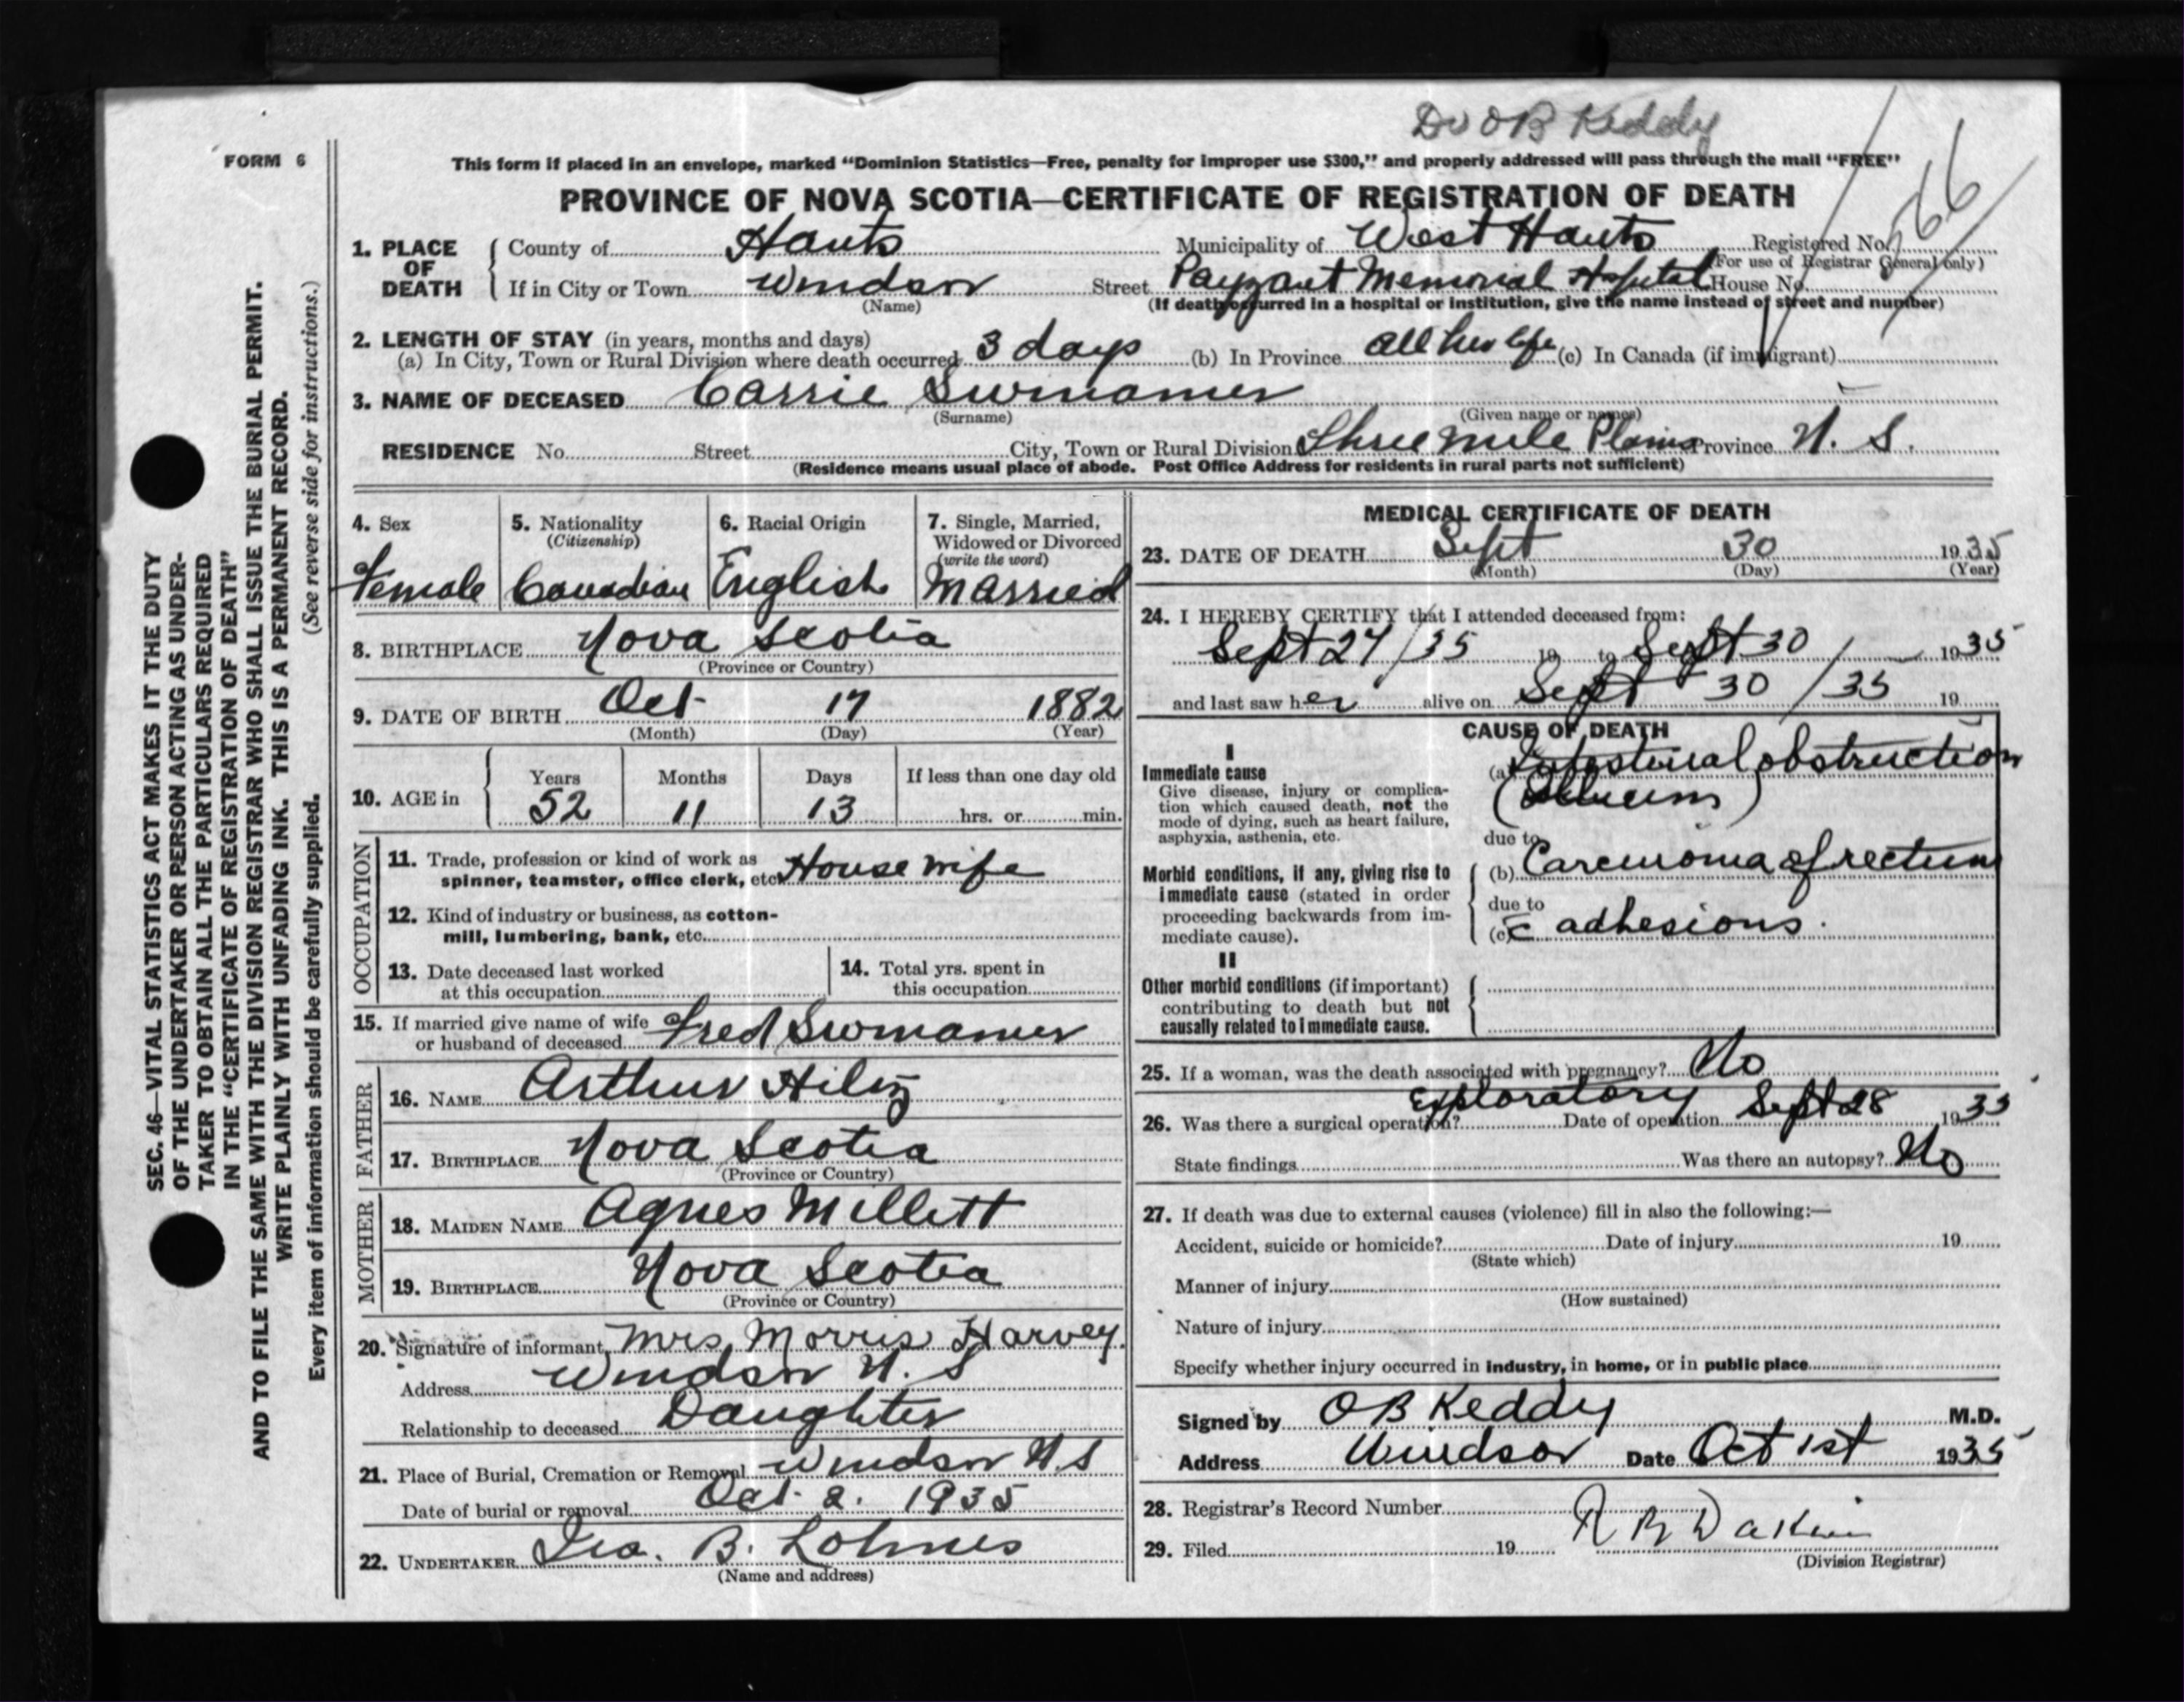 Dr OB Keddy
FORM 6
This form if placed in an envelope, marked “Dominion Statistics—Free, penalty for improper use $300,” and properly addressed will pass through the mail “FREE”
PROVINCE OF NOVA SCOTIA—CERTIFICATE OF REGISTRATION OF DEATH
1. PLACE OF DEATH
County of Hants Municipality of West Hants Registered No.
(For use of Registrar General only)
If in City or Town Windsor Street Payzant Memorial Hospital House No.
(Name) (If death occurred in a hospital or institution, give the name instead of street and number)
2. LENGTH OF STAY (in years, months and days)
(a) In City, Town or Rural Division where death occurred 3 days (b) In Province all her life (c) In Canada (if immigrant)
3. NAME OF DECEASED Carrie Swinamer
(Surname) (Given name or names)
RESIDENCE No. Street City, Town or Rural Division Three Mile Plains Province N. S.
(Residence means usual place of abode. Post Office Address for residents in rural parts not sufficient)
SEC. 46—VITAL STATISTICS ACT MAKES IT THE DUTY
OF THE UNDERTAKER OR PERSON ACTING AS UNDER-
TAKER TO OBTAIN ALL THE PARTICULARS REQUIRED
IN THE “CERTIFICATE OF REGISTRATION OF DEATH”
AND TO FILE THE SAME WITH THE DIVISION REGISTRAR WHO SHALL ISSUE THE BURIAL PERMIT.
WRITE PLAINLY WITH UNFADING INK. THIS IS A PERMANENT RECORD.
Every item of information should be carefully supplied. (See reverse side for instructions.)
4. Sex
Female
5. Nationality
(Citizenship)
Canadian
6. Racial Origin
English
7. Single, Married,
Widowed or Divorced
(write the word)
Married
8. BIRTHPLACE Nova Scotia
(Province or Country)
9. DATE OF BIRTH Oct 17 1882
(Month) (Day) (Year)
10. AGE in
Years Months Days If less than one day old
52 11 13 hrs. or min.
OCCUPATION
11. Trade, profession or kind of work as
spinner, teamster, office clerk, etc. House wife
12. Kind of industry or business, as cotton-
mill, lumbering, bank, etc.
13. Date deceased last worked
at this occupation
14. Total yrs. spent in
this occupation
15. If married give name of wife
or husband of deceased Fred Swinamer
FATHER
16. NAME Arthur Hilz
17. BIRTHPLACE Nova Scotia
(Province or Country)
MOTHER
18. MAIDEN NAME Agnes Millett
19. BIRTHPLACE Nova Scotia
(Province or Country)
20. Signature of informant Mrs Morris Harvey.
Address Windsor N. S
Relationship to deceased Daughter
21. Place of Burial, Cremation or Removal Windsor N S
Date of burial or removal Oct. 2. 1935
22. UNDERTAKER Geo. B. Lohnes
(Name and address)
MEDICAL CERTIFICATE OF DEATH
23. DATE OF DEATH Sept 30 1935
(Month) (Day) (Year)
24. I HEREBY CERTIFY that I attended deceased from:
Sept 27/35 19 to Sept 30/ 1935
and last saw her alive on Sept 30/35 19
CAUSE OF DEATH
I
Immediate cause
Give disease, injury or complica-
tion which caused death, not the
mode of dying, such as heart failure,
asphyxia, asthenia, etc.
(a) Intestinal obstruction
due to
Morbid conditions, if any, giving rise to
immediate cause (stated in order
proceeding backwards from im-
mediate cause).
(b) Carcinoma of rectum
due to
(c) c̄ adhesions.
II
Other morbid conditions (if important)
contributing to death but not
causally related to immediate cause.
25. If a woman, was the death associated with pregnancy? No
26. Was there a surgical operation? Exploratory Date of operation Sept 28 1935
State findings Was there an autopsy? No
27. If death was due to external causes (violence) fill in also the following:—
Accident, suicide or homicide? Date of injury 19
(State which)
Manner of injury
(How sustained)
Nature of injury
Specify whether injury occurred in industry, in home, or in public place
Signed by OB Keddy M.D.
Address Windsor Date Oct 1st 1935
28. Registrar’s Record Number
29. Filed 19 R B Dakin
(Division Registrar)